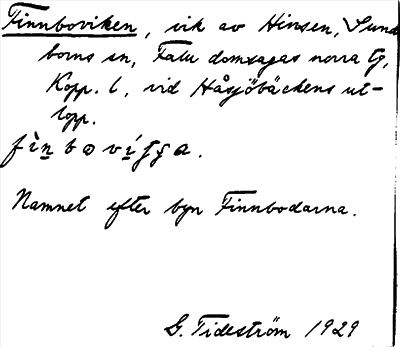 Finnboviken, vik av Hinsen, Sund
borns sn, Falu domsagas norra tg,
Kopp. l, vid Håsjöbäckens ut-
lopp.
Namnet efter byn Finnbodarna.
G. Tideström 1929